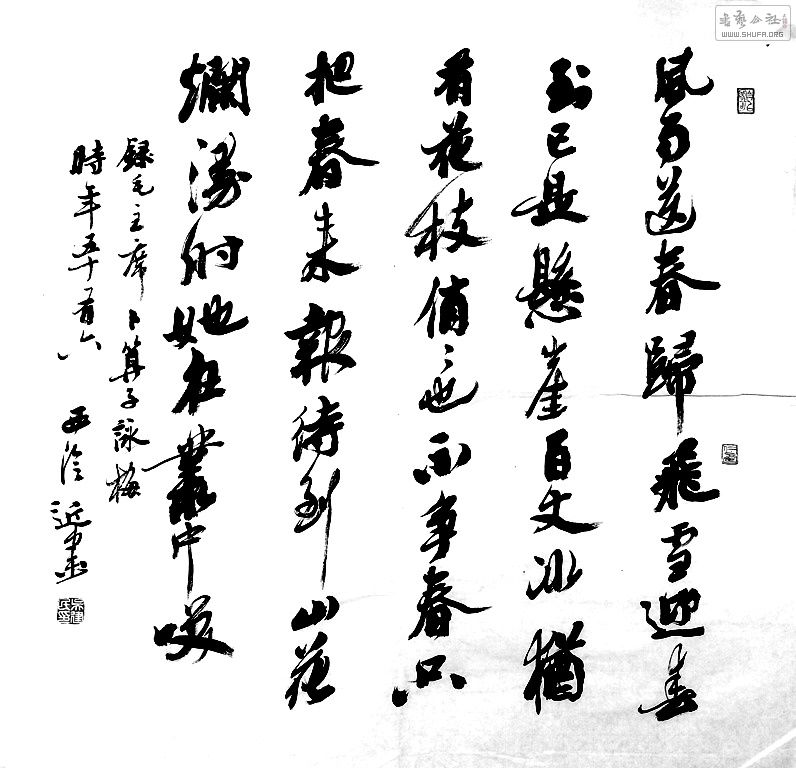 風雨送春歸飛雪迎春
到已是懸崖百丈冰猶
有花枝俏〻也不爭春只
把春来報待到山花
爛漫时她在叢中咲
録毛主席卜算子詠梅
時年五十有六
書藝公社
WWW.SHUFA.ORG